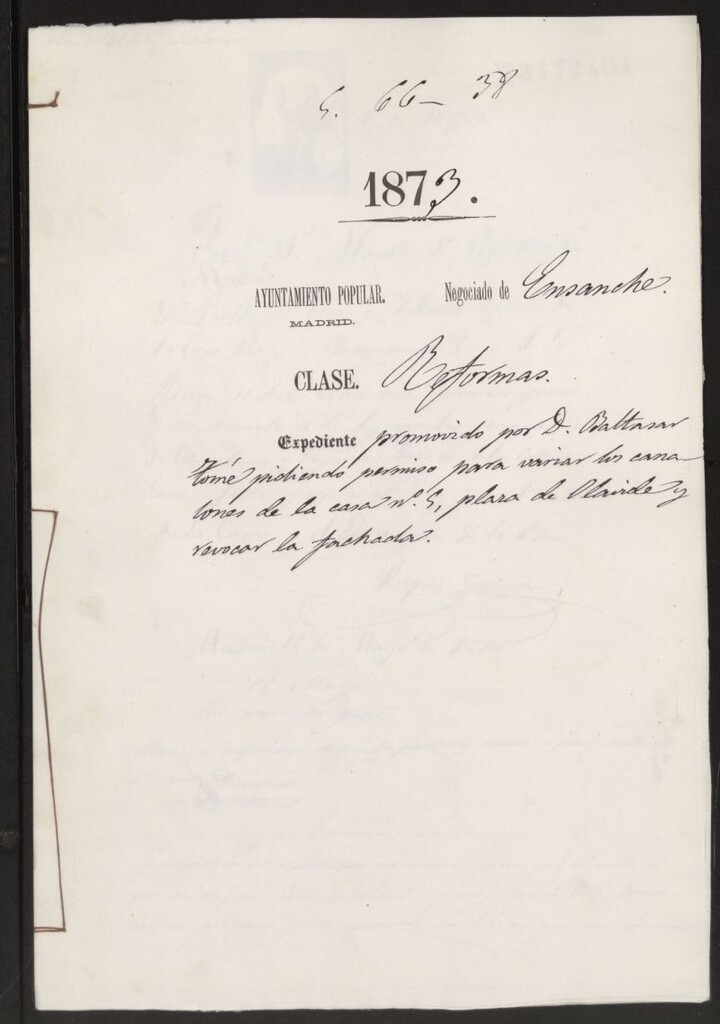 5. 66- 38
1873.
AYUNTAMIENTO POPULAR. Negociado de Ensanche.
MADRID.
CLASE. Reformas.
Expediente promovido por D. Baltasar
Tomé pidiendo permiso para variar los cana-
lones de la casa nº. 5, plaza de Olavide y
revocar la fachada.